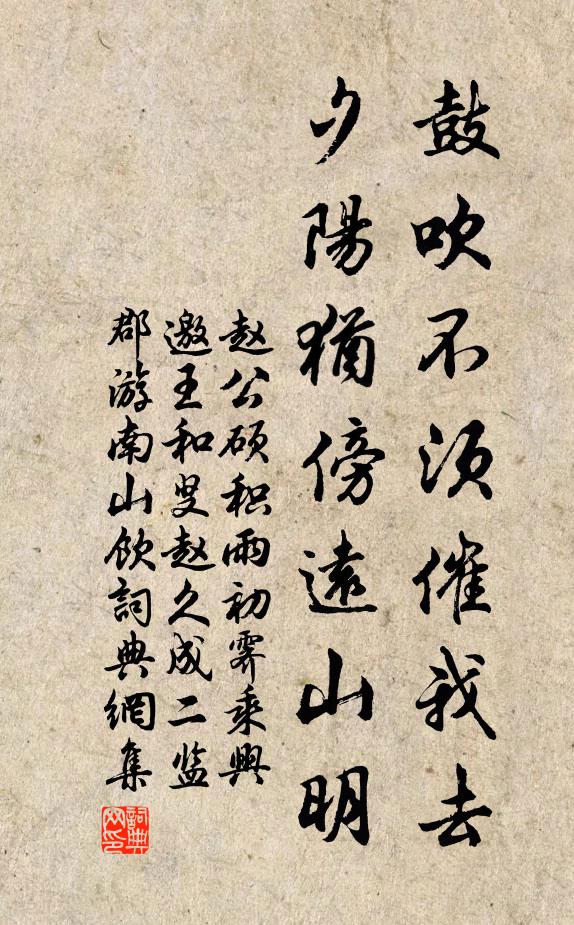 鼓吹不須催我去
夕陽猶傍遠山明
赵公硕积雨初霁乘興
邀王和叟赵久成二监
郡游南山飲詞典網集
詞典
网印